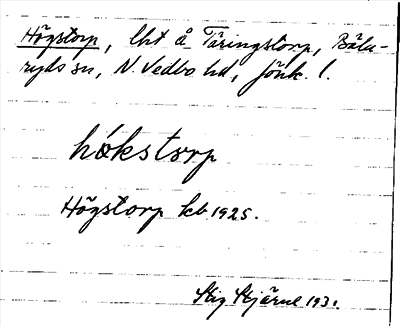 Högstorp, lht å Täringstorp, Bäla-
ryds sn, N. Vedbo hd, Jönk. l.
hökstorp
Högstorp kb 1925.
Stig Stjärne 193.